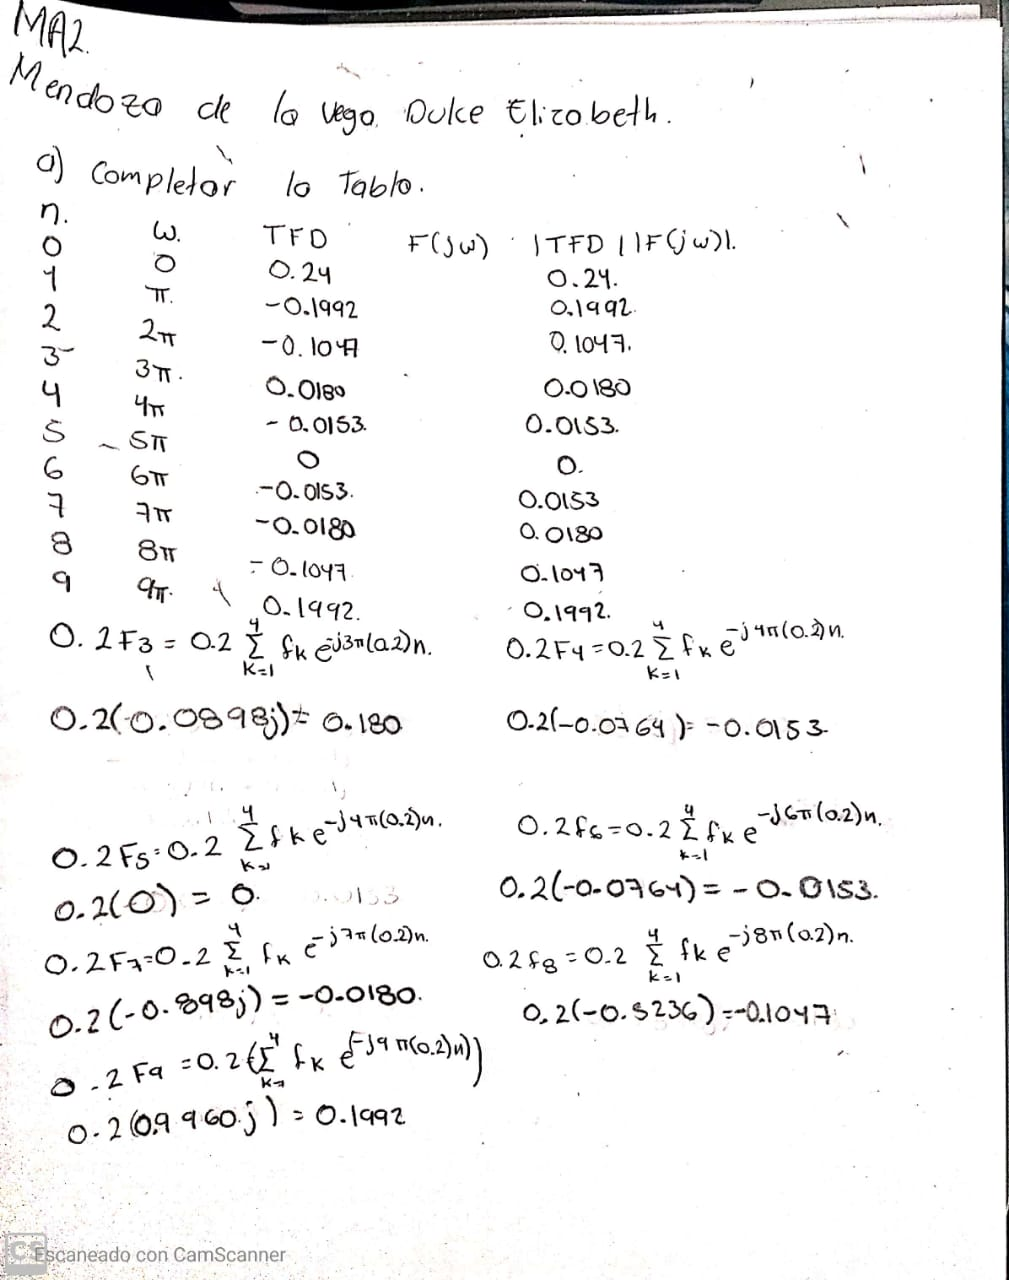 MA2.
Mendoza de la vega Dulce Elizabeth.
a) Completar la Tabla.
n. ω. TFD F(jω) |TFD| |F(jω)|.
0 0 0.24 0.24.
1 π. -0.1992 0.1992.
2 2π -0.1047 0.1047.
3 3π. 0.0180 0.0180
4 4π -0.0153. 0.0153.
5 5π 0 0.
6 6π -0.0153. 0.0153
7 7π -0.0180 0.0180
8 8π -0.1047. 0.1047
9 9π. 0.1992. 0.1992.
0.2F3 = 0.2 4 Σ k=1 fk e-j3π(0.2)n. 0.2F4=0.2 4 Σ k=1 fk e-j4π(0.2)n.
0.2(0.0898j)= 0.180 0.2(-0.0764)= -0.0153.
0.2F5=0.2 4 Σ fk e-j4π(0.2)n. 0.2f6=0.2 4 Σ k=1 fk e-j6π(0.2)n.
0.2(0) = 0. 0.2(-0.0764) = -0.0153.
0.2F7=0.2 4 Σ k=1 fk e-j7π(0.2)n. 0.2f8=0.2 4 Σ k=1 fk e-j8π(0.2)n.
0.2(-0.898j) = -0.0180. 0.2(-0.5236)=-0.1047
0.2F9 =0.2(4 Σ fk e(-j9π(0.2)n))
0.2(0.9960j) = 0.1992
CS Escaneado con CamScanner